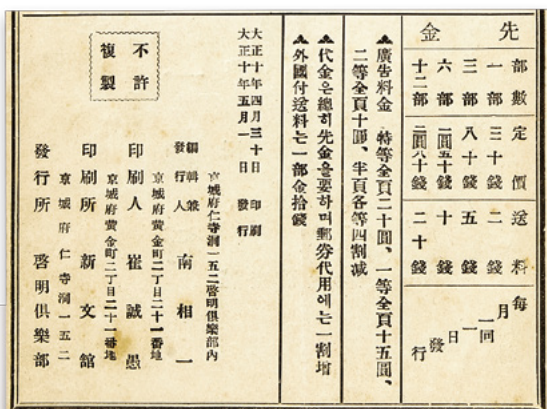 先金
部數 定價 送料
一部 三十錢 二錢
三部 八十錢 五錢
六部 一圓五十錢 十錢
十二部 二圓八十錢 二十錢
每月一回一日發行
▲廣告料金 特等全頁二十圓、一等全頁十五圓、
二等全頁十圓、半頁各等四割減
▲代金은總히先金을要하며郵券代用에는一割增
▲外國付送料는一部金拾錢
大正十年四月三十日 印刷
大正十年五月一日 發行
不許
複製
京城府仁寺洞一五二啓明俱樂部內
編輯兼
發行人 南相一
京城府黃金町二丁目二十一番地
印刷人 崔誠愚
京城府黃金町二丁目二十一番地
印刷所 新文舘
京城府仁寺洞一五二
發行所 啓明俱樂部